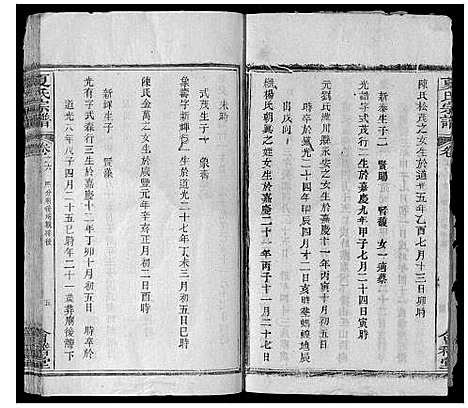 夏氏宗譜
卷
陳氏松茂之女生於道光五年乙酉七月十三日卯時
新泰生子二 賢 賢馥 女一適蔡
光賓字式茂行二生於嘉慶九年甲子七月二十四日寅時
元劉氏 川縣永安之女生於嘉慶二十一年丙寅十月初五日
時卒於道光二十四年甲辰四月初六日葬螃蟆地辰
出戌向
繼楊氏朝興之女生於嘉慶二十一年丙子十一月二十七日
會 堂
未時
式茂生子一 象壽
象壽字新輝 生於道光二十七年丁未三月初五日巳時
陳氏金萬之女生於咸豐元年辛亥正月初二日酉時
新輝生子
光有字式森行三生於嘉慶十二年丁卯十月初五日 時卒於
道光八年戊子四月二十五日巳時年二十一葬廟後灣下
夏氏宗譜
卷之六
五
會 堂